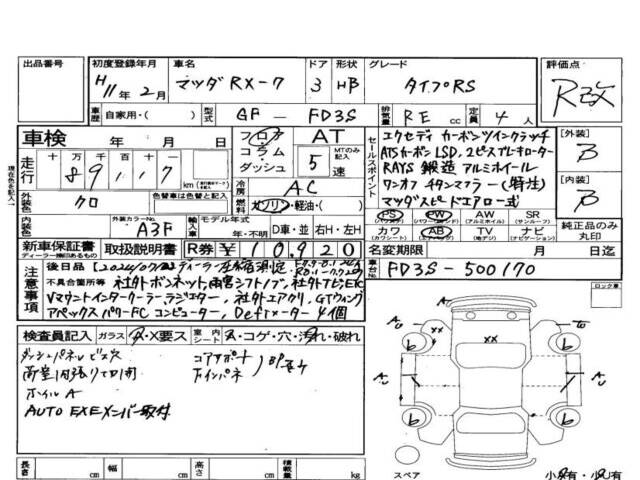 出品番号
初度登録年月 H11年2月
車名 マツダRX-7
ドア 3
形状 HB
グレード タイプRS
評価点 R改
車歴 自家用・( )
型式 GF - FD3S
排気量 RE cc
定員 4人
車検 年 月 日
フロア コラム ダッシュ
AT
MTのみ記入 5速
走行 十万 万 千 百 十
89,117 km
セールスポイント
エクセディ カーボンツインクラッチ
ATSカーボンLSD, 2ピースブレーキローター
RAYS 鍛造 アルミホイール
ワンオフ チタンマフラー (特注)
マツダスピードエアロ一式
[外装] B
[内装] B
現在色を記入
外装色 クロ
色替車は色替と記入
冷房 AC
燃料 ガソリン・軽油・( )
PS (パワステ)
PW
AW (アルミホイール)
SR (サンルーフ)
カワ (カワシート)
AB
TV (地デジ)
ナビ (ナビゲーション)
純正品のみ丸印
内装色
外装カラーNo. A3F
輸入車
モデル年式 年・不明
D車・並
右H・左H
新車保証書
ディーラー捺印あるもの
取扱説明書
R券 ¥10,920
名変期限 月 日迄
車台No. FD3S-500170
注意事項
後日品
不具合箇所等 社外ボンネット, 雨宮シフトノブ, 社外ナビETC
Vマウントインタークーラーラジエター, 社外エアクリ, GTウィング
アペックス パワーFC コンピューター, Defiメーター4個
ロック車
検査員記入
ガラス A・X要ス
室内 シート
コゲ・穴・汚れ・破れ
ダッシュパネルビス穴
コアサポート
下インパネ
ホイルA
AUTO EXEメンバー取付
A
A
xx
xx
b
b
b
b
A
A
長さ cm
幅 cm
高さ cm
積載量 kg
スペア
小A有・小U有